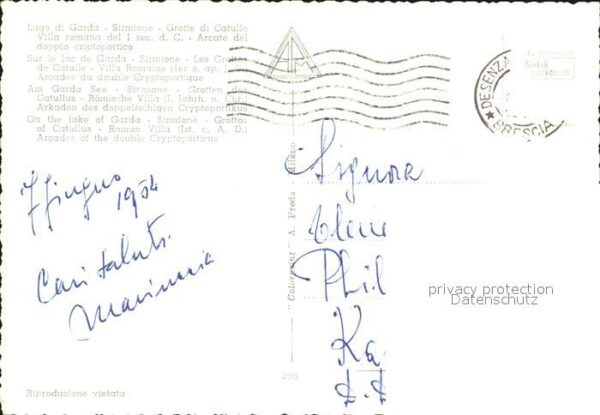 Lago di Garda - Sirmione - Grotte di Catullo
Villa romana del I sec. d. C. - Arcate del
doppio criptoportico
Sur le lac de Garda - Sirmione - Les Grottes
de Catulle - Villa Romaine (Ier s. ap.
Arcades du double Cryptoportique
Am Garda See - Sirmione - Grotten des
Catullus - Römische Villa (I. Jahrh. n. Chr.)
Arkaden des doppelreihigen Cryptoportikus
On the lake of Garda - Sirmione - Grottos
of Catullus - Roman Villa (Ist. c. A. D.)
Arcades of the double Cryptoporticus
DESENZA
BRESCIA
Kodak
7 giugno
1954
Cari saluti
"Colorprint" A. Preda Milano
Signora
Phil
Ka
privacy protection
Datenschutz
290
Riproduzione vietata